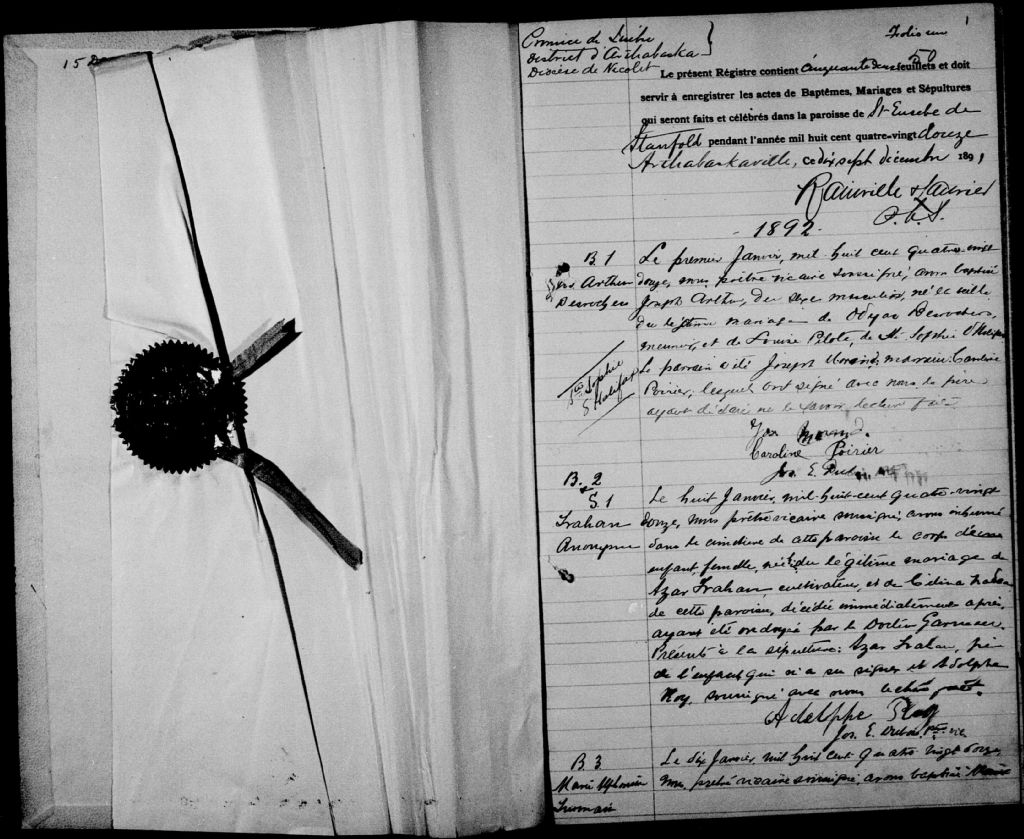 15 D
1
Folio un
Province de Québec
District d'Arthabaska
Diocèse de Nicolet
50
Le présent Régistre contient Cinquante deux feuillets et doit
servir à enregistrer les actes de Baptêmes, Mariages et Sépultures
qui seront faits et célébrés dans la paroisse de St Eusèbe de
Stanfold pendant l'année mil huit cent quatre-vingt douze
Arthabaskaville, Ce dix sept décembre 1891
Rainville & Laurier
P.C.S.
1892.
B 1
Jos Arthur
Desrochers
Le premier Janvier, mil huit cent quatre-vingt
douze, nous prêtre vicaire soussigné, avons baptisé
Joseph Arthur, du sexe masculin, né la veille
du légitime mariage de Odjas Desrochers,
meunier, et de Louise Pilote, de St. Sophie d'Halifax
Le parrain a été Joseph Morand, marraine Caroline
Poirier, lesquels ont signé avec nous le père
ayant déclaré ne le savoir lecture faite
Ste Sophie
d'Halifax
Jos Morand.
Caroline Poirier
Jos. E.
B. 2
&
S. 1
Trahan
Anonyme
Le huit Janvier, mil-huit-cent quatre-vingt
douze, nous prêtre vicaire soussigné, avons inhumé
dans le cimetière de cette paroisse le corps d'une
enfant, femelle, née du légitime mariage de
Azar Trahan, cultivateur, et de Edina
de cette paroisse, décédée immédiatement après,
ayant été ondoyée par le Docteur
Présents à la sépulture: Azar Trahan, père
de l'enfant qui n'a su signer et Adolphe
Roy, soussigné avec nous lecture faite.
Adelphe Roy
Jos. E. Ptre vic
B 3
Marie
Le dix Janvier mil huit cent quatre vingt douze,
nous, prêtre vicaire soussigné, avons baptisé Marie